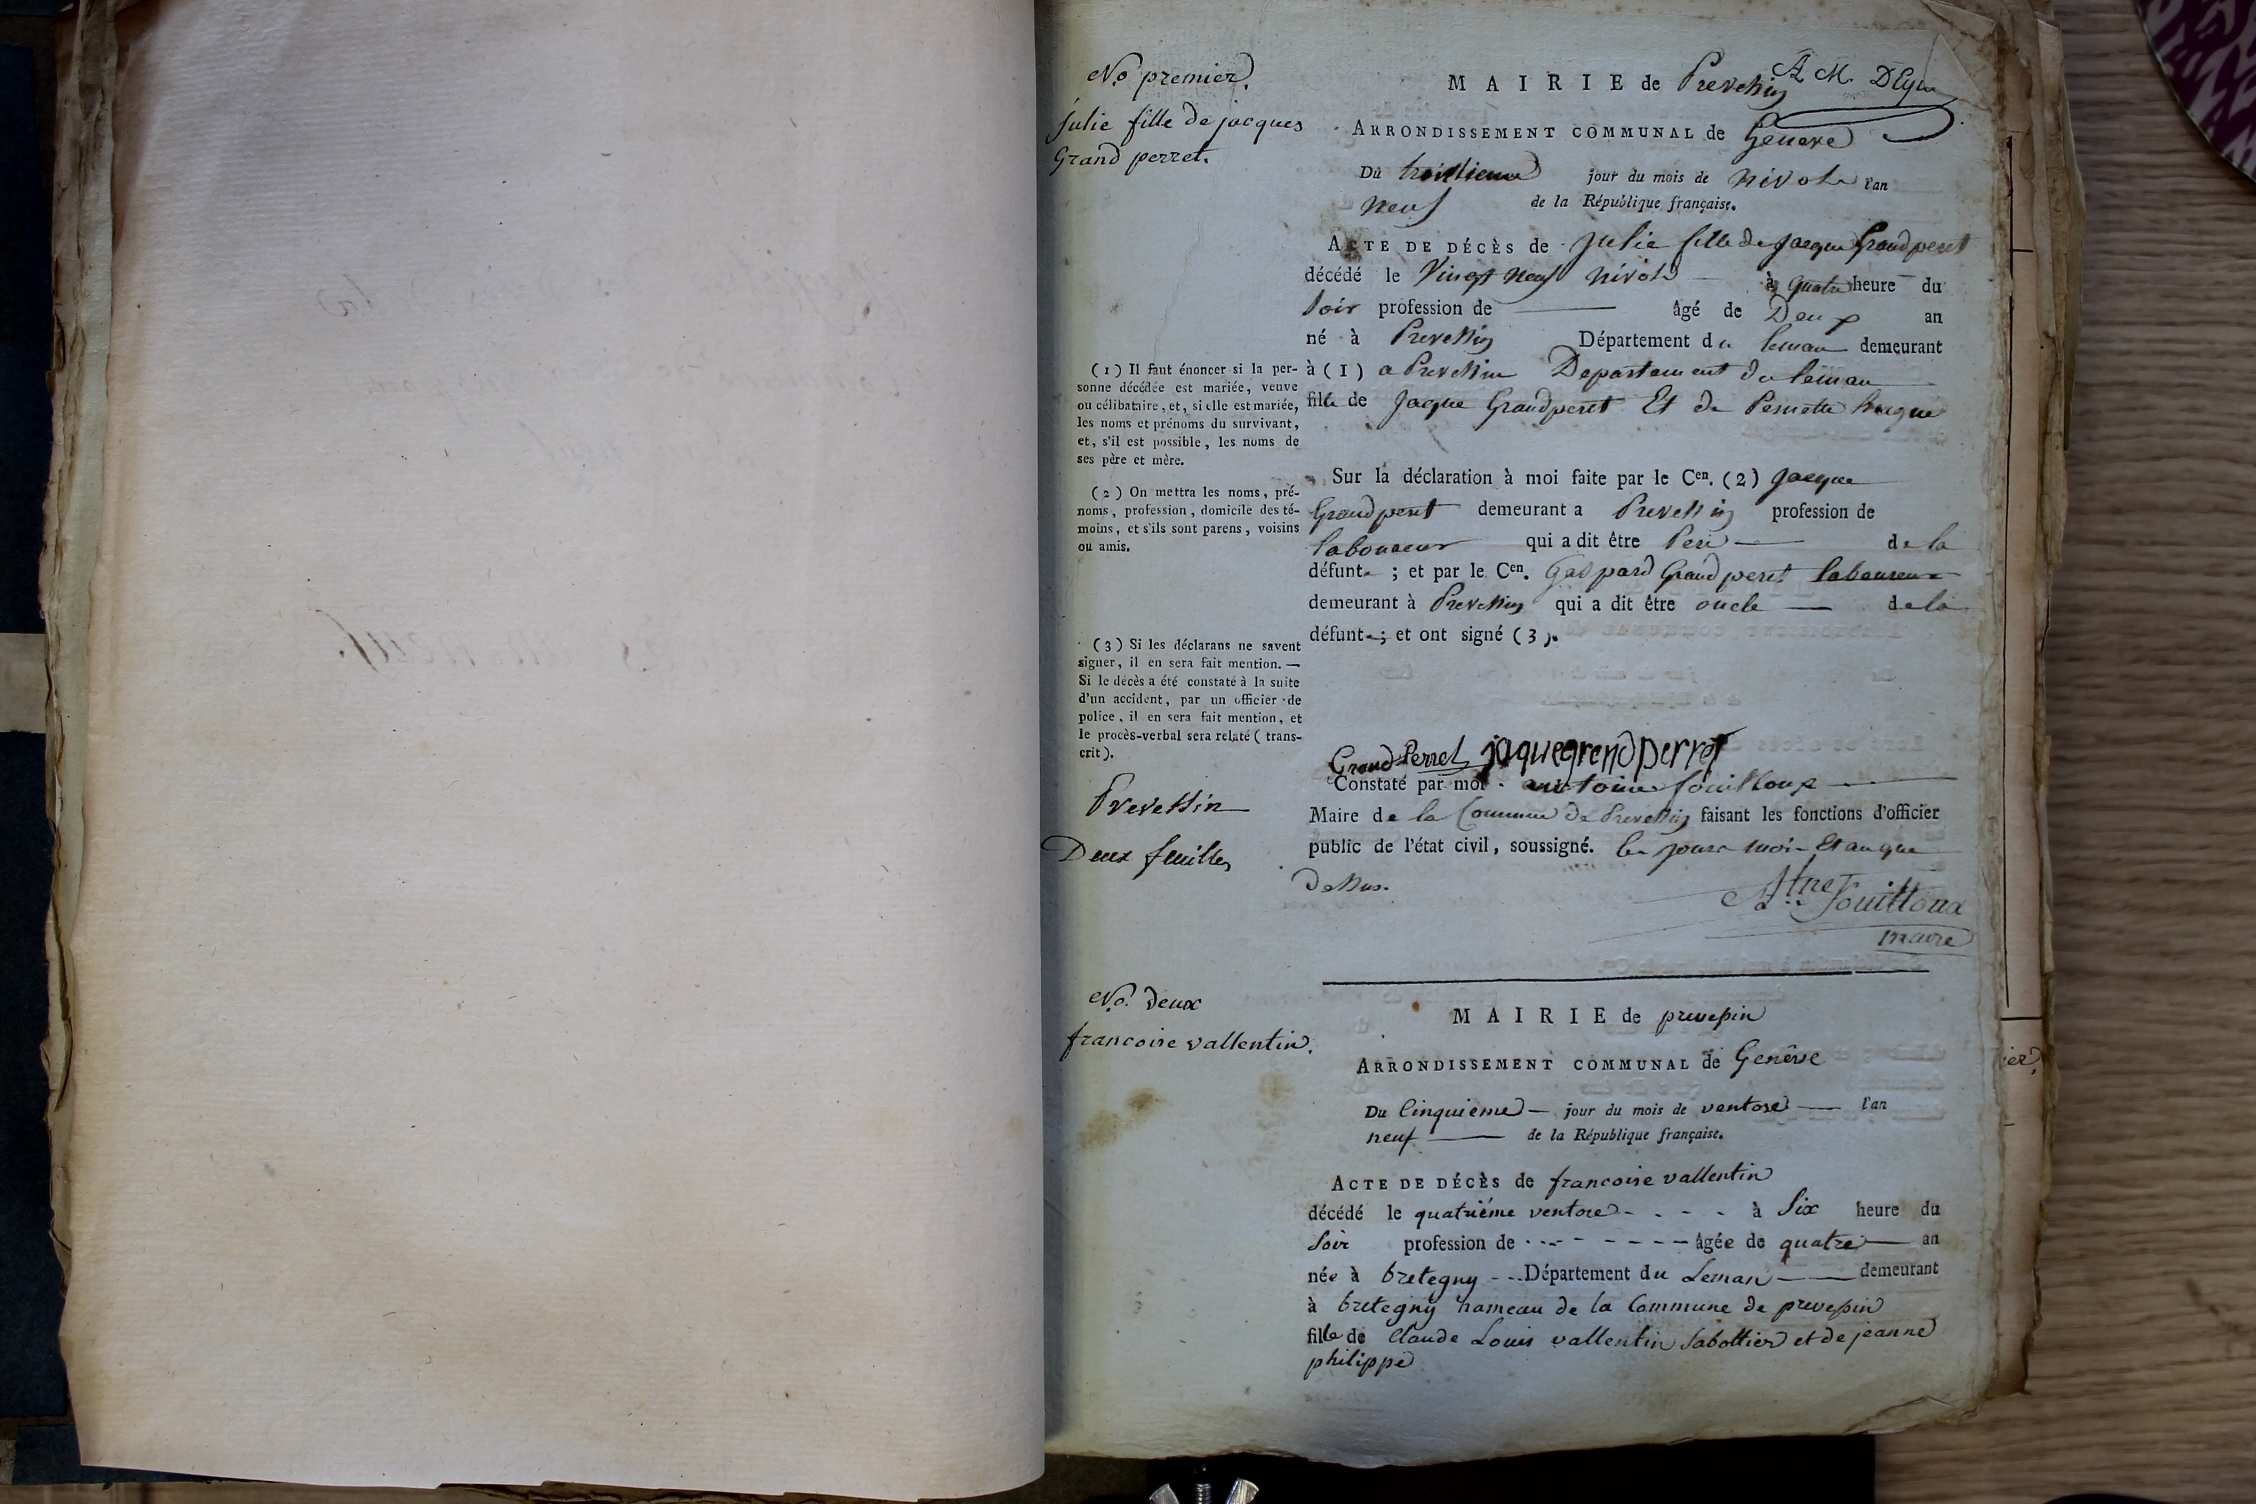 No. premier.
Julie fille de jacques
Grand perret.
MAIRIE de Prevessin
A M. DEym
ARRONDISSEMENT COMMUNAL de Geneve
Du trentieme jour du mois de nivose l'an
neuf de la République française.
ACTE DE DÉCÈS de Julie fille de Jacque Grandperet
décédé le Vingt neuf nivose à quatre heure du
soir profession de âgé de Deux an
né à Prevessin Département du leman demeurant
à (1) a Prevessin Departement du leman
fille de Jaque Grandperet Et de Pernette
(1) Il faut énoncer si la per-
sonne décédée est mariée, veuve
ou célibataire, et, si elle est mariée,
les noms et prénoms du survivant,
et, s'il est possible, les noms de
ses père et mère.
(2) On mettra les noms, pré-
noms, profession, domicile des té-
moins, et s'ils sont parens, voisins
ou amis.
Sur la déclaration à moi faite par le Cen. (2) Jacque
Grandperet demeurant a Prevessin profession de
laboureur qui a dit être Pere de la
défunte ; et par le Cen. Gaspard Grandperet laboureur
demeurant à Prevessin qui a dit être oncle de la
défunte ; et ont signé (3).
(3) Si les déclarans ne savent
signer, il en sera fait mention. —
Si le décès a été constaté à la suite
d'un accident, par un officier de
police, il en sera fait mention, et
le procès-verbal sera relaté (trans-
crit).
Grand Perret jaquegrendperret
Constaté par moi antoine fouilloux
Maire de la Commune de Prevessin faisant les fonctions d'officier
public de l'état civil, soussigné. les jours mois Et an que
dessus.
Prevessin
Deux feuilles
Atne Fouilloux
maire
No. deux
francoise vallentin.
MAIRIE de prevessin
ARRONDISSEMENT COMMUNAL de Genêve
Du Cinquieme jour du mois de ventose l'an
neuf de la République française.
ACTE DE DÉCÈS de francoise vallentin
décédé le quatriéme ventose à Six heure du
Soir profession de âgée de quatre an
née à bretegny Département du Leman demeurant
à bretegny hameau de la Commune de prevessin
fille de Claude Louis vallentin Sabottier et de jeanne
philippe